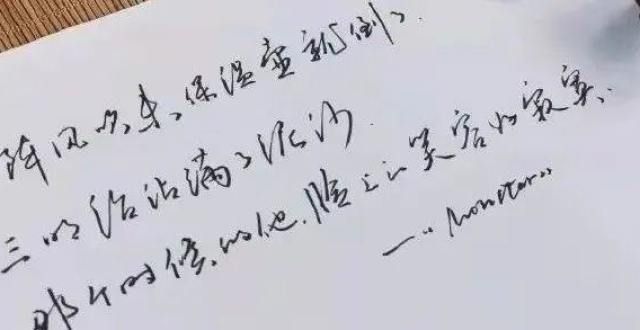 阵风吹来,保温壶就倒了,
三明治沾满了泥沙.
那个时候的他,脸上的笑容好寂寞.
—..Monster..